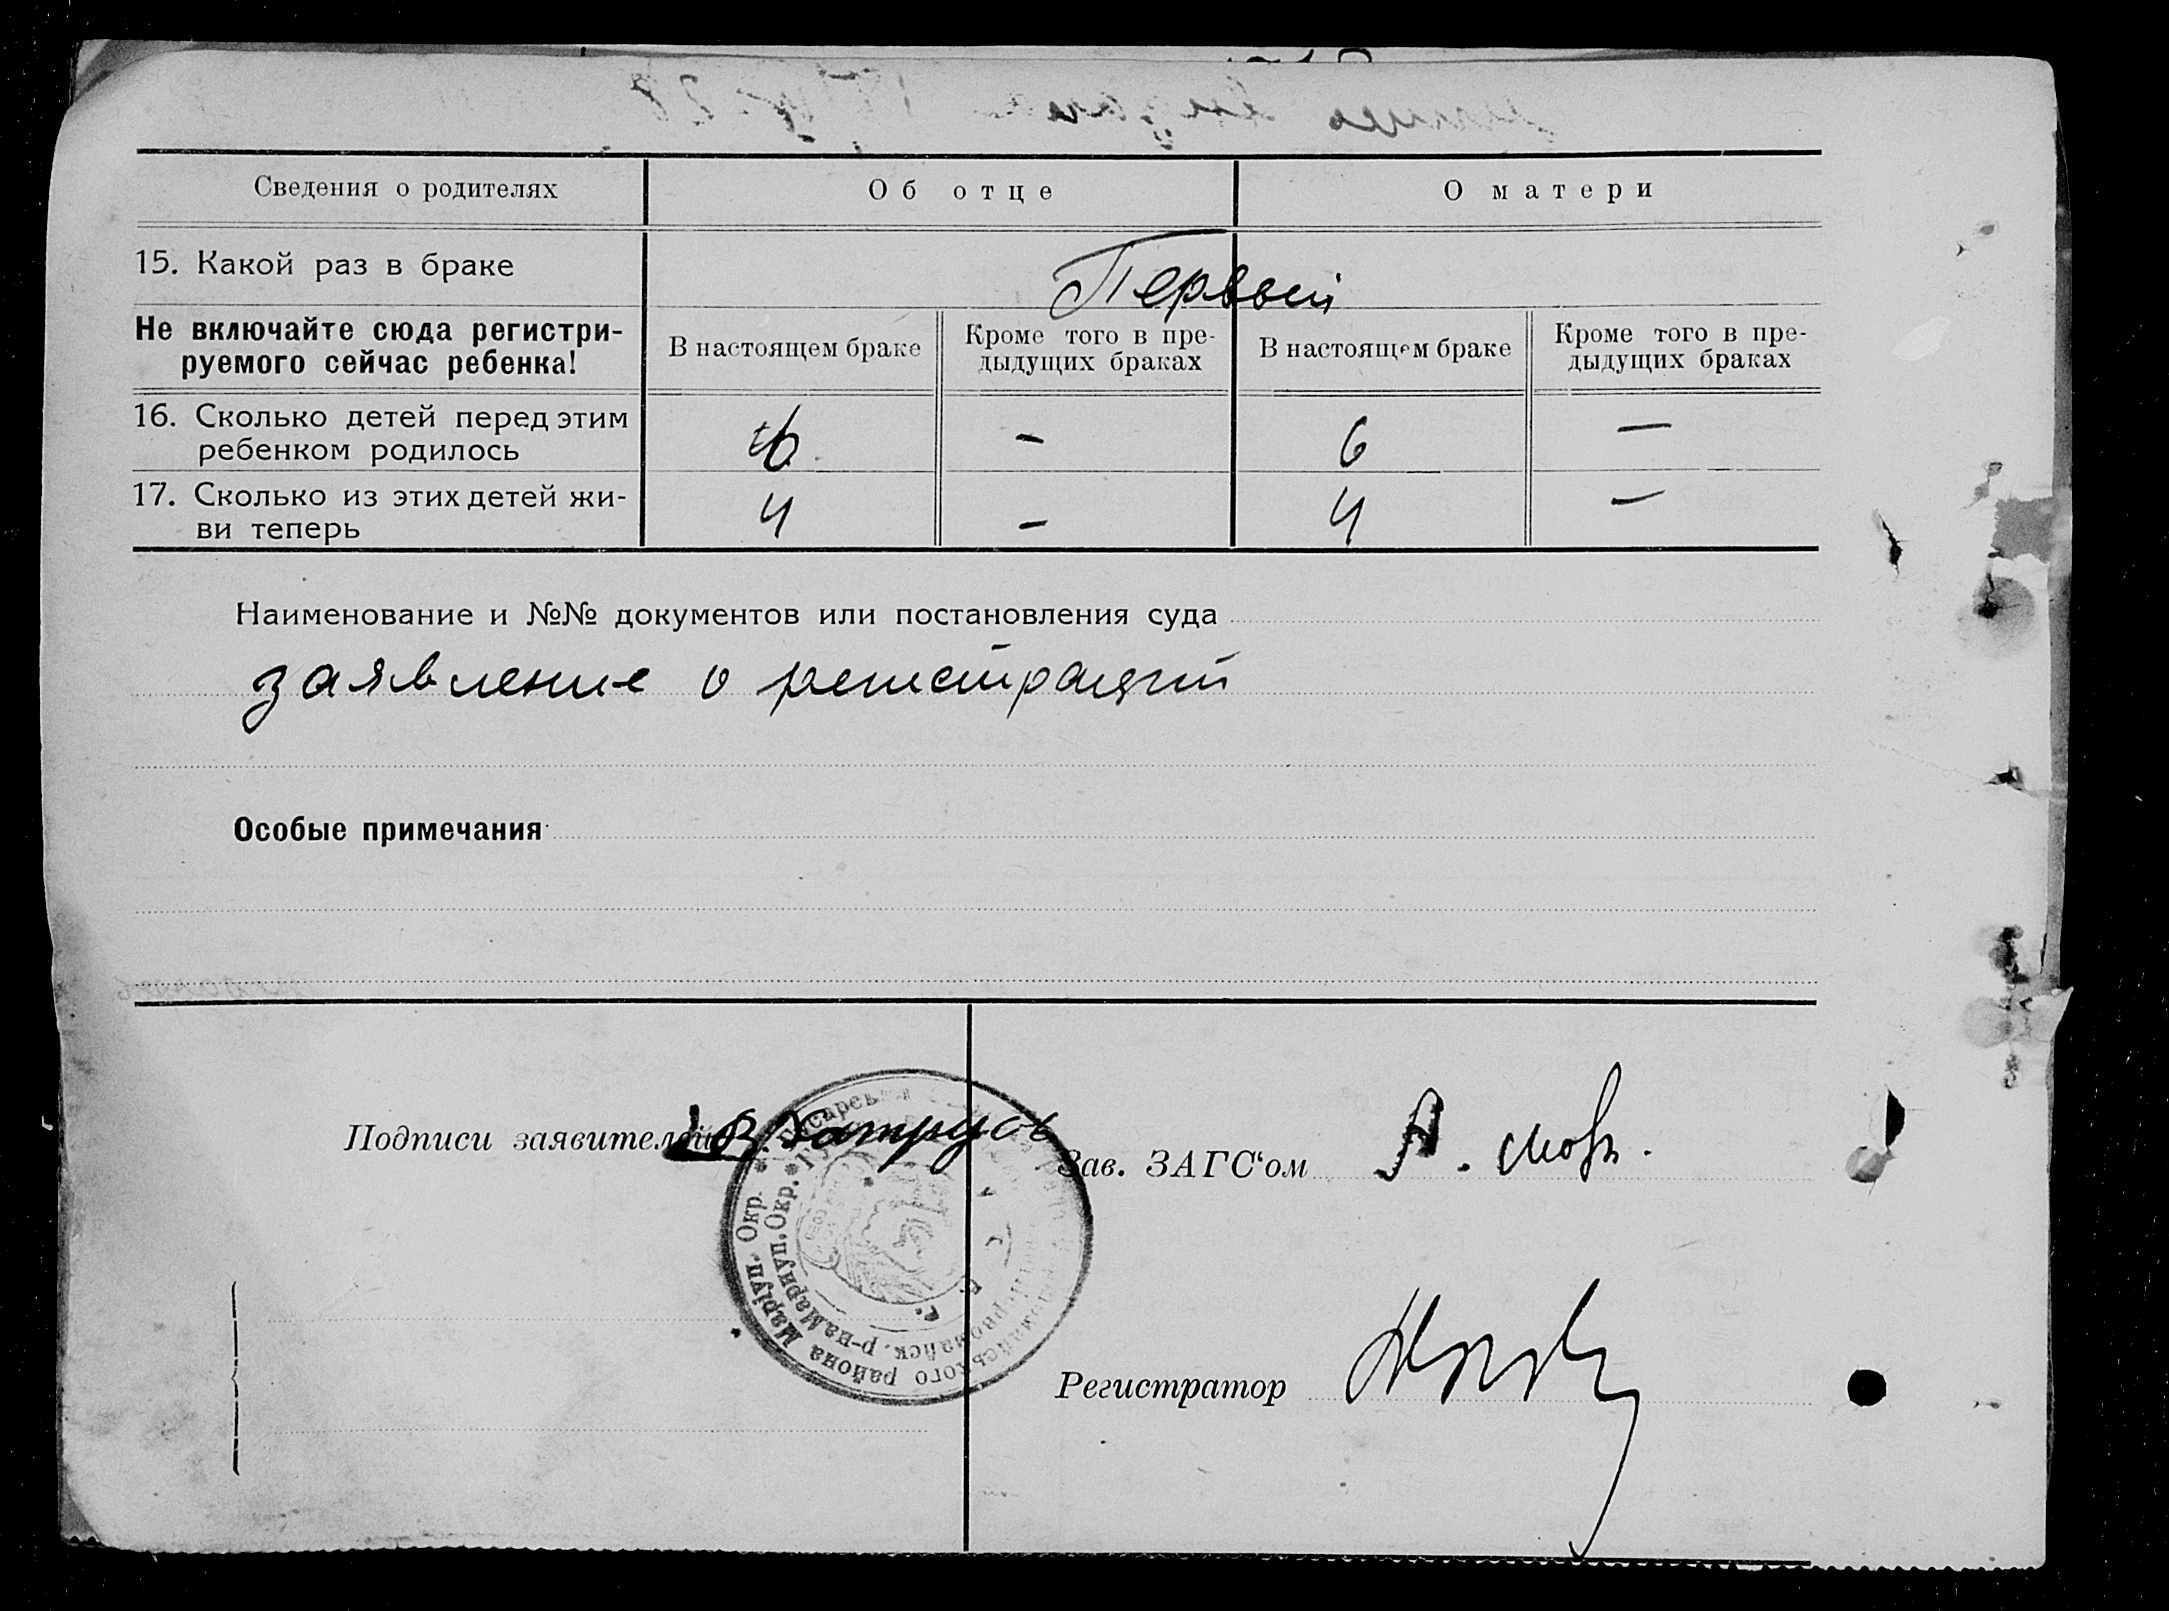 Сведения о родителях
Об отце
О матери
15. Какой раз в браке
Первый
Не включайте сюда регистри-
руемого сейчас ребенка!
В настоящем браке
Кроме того в пре-
дыдущих браках
В настоящем браке
Кроме того в пре-
дыдущих браках
16. Сколько детей перед этим
ребенком родилось
6
-
6
—
17. Сколько из этих детей жи-
ви теперь
4
-
4
—
Наименование и №№ документов или постановления суда
заявление о регистрации
Особые примечания
Подписи заявителей
Маріуп. Окр.
района
Мариуп. Окр.
р-на
Зав. ЗАГС'ом
А.
Регистратор